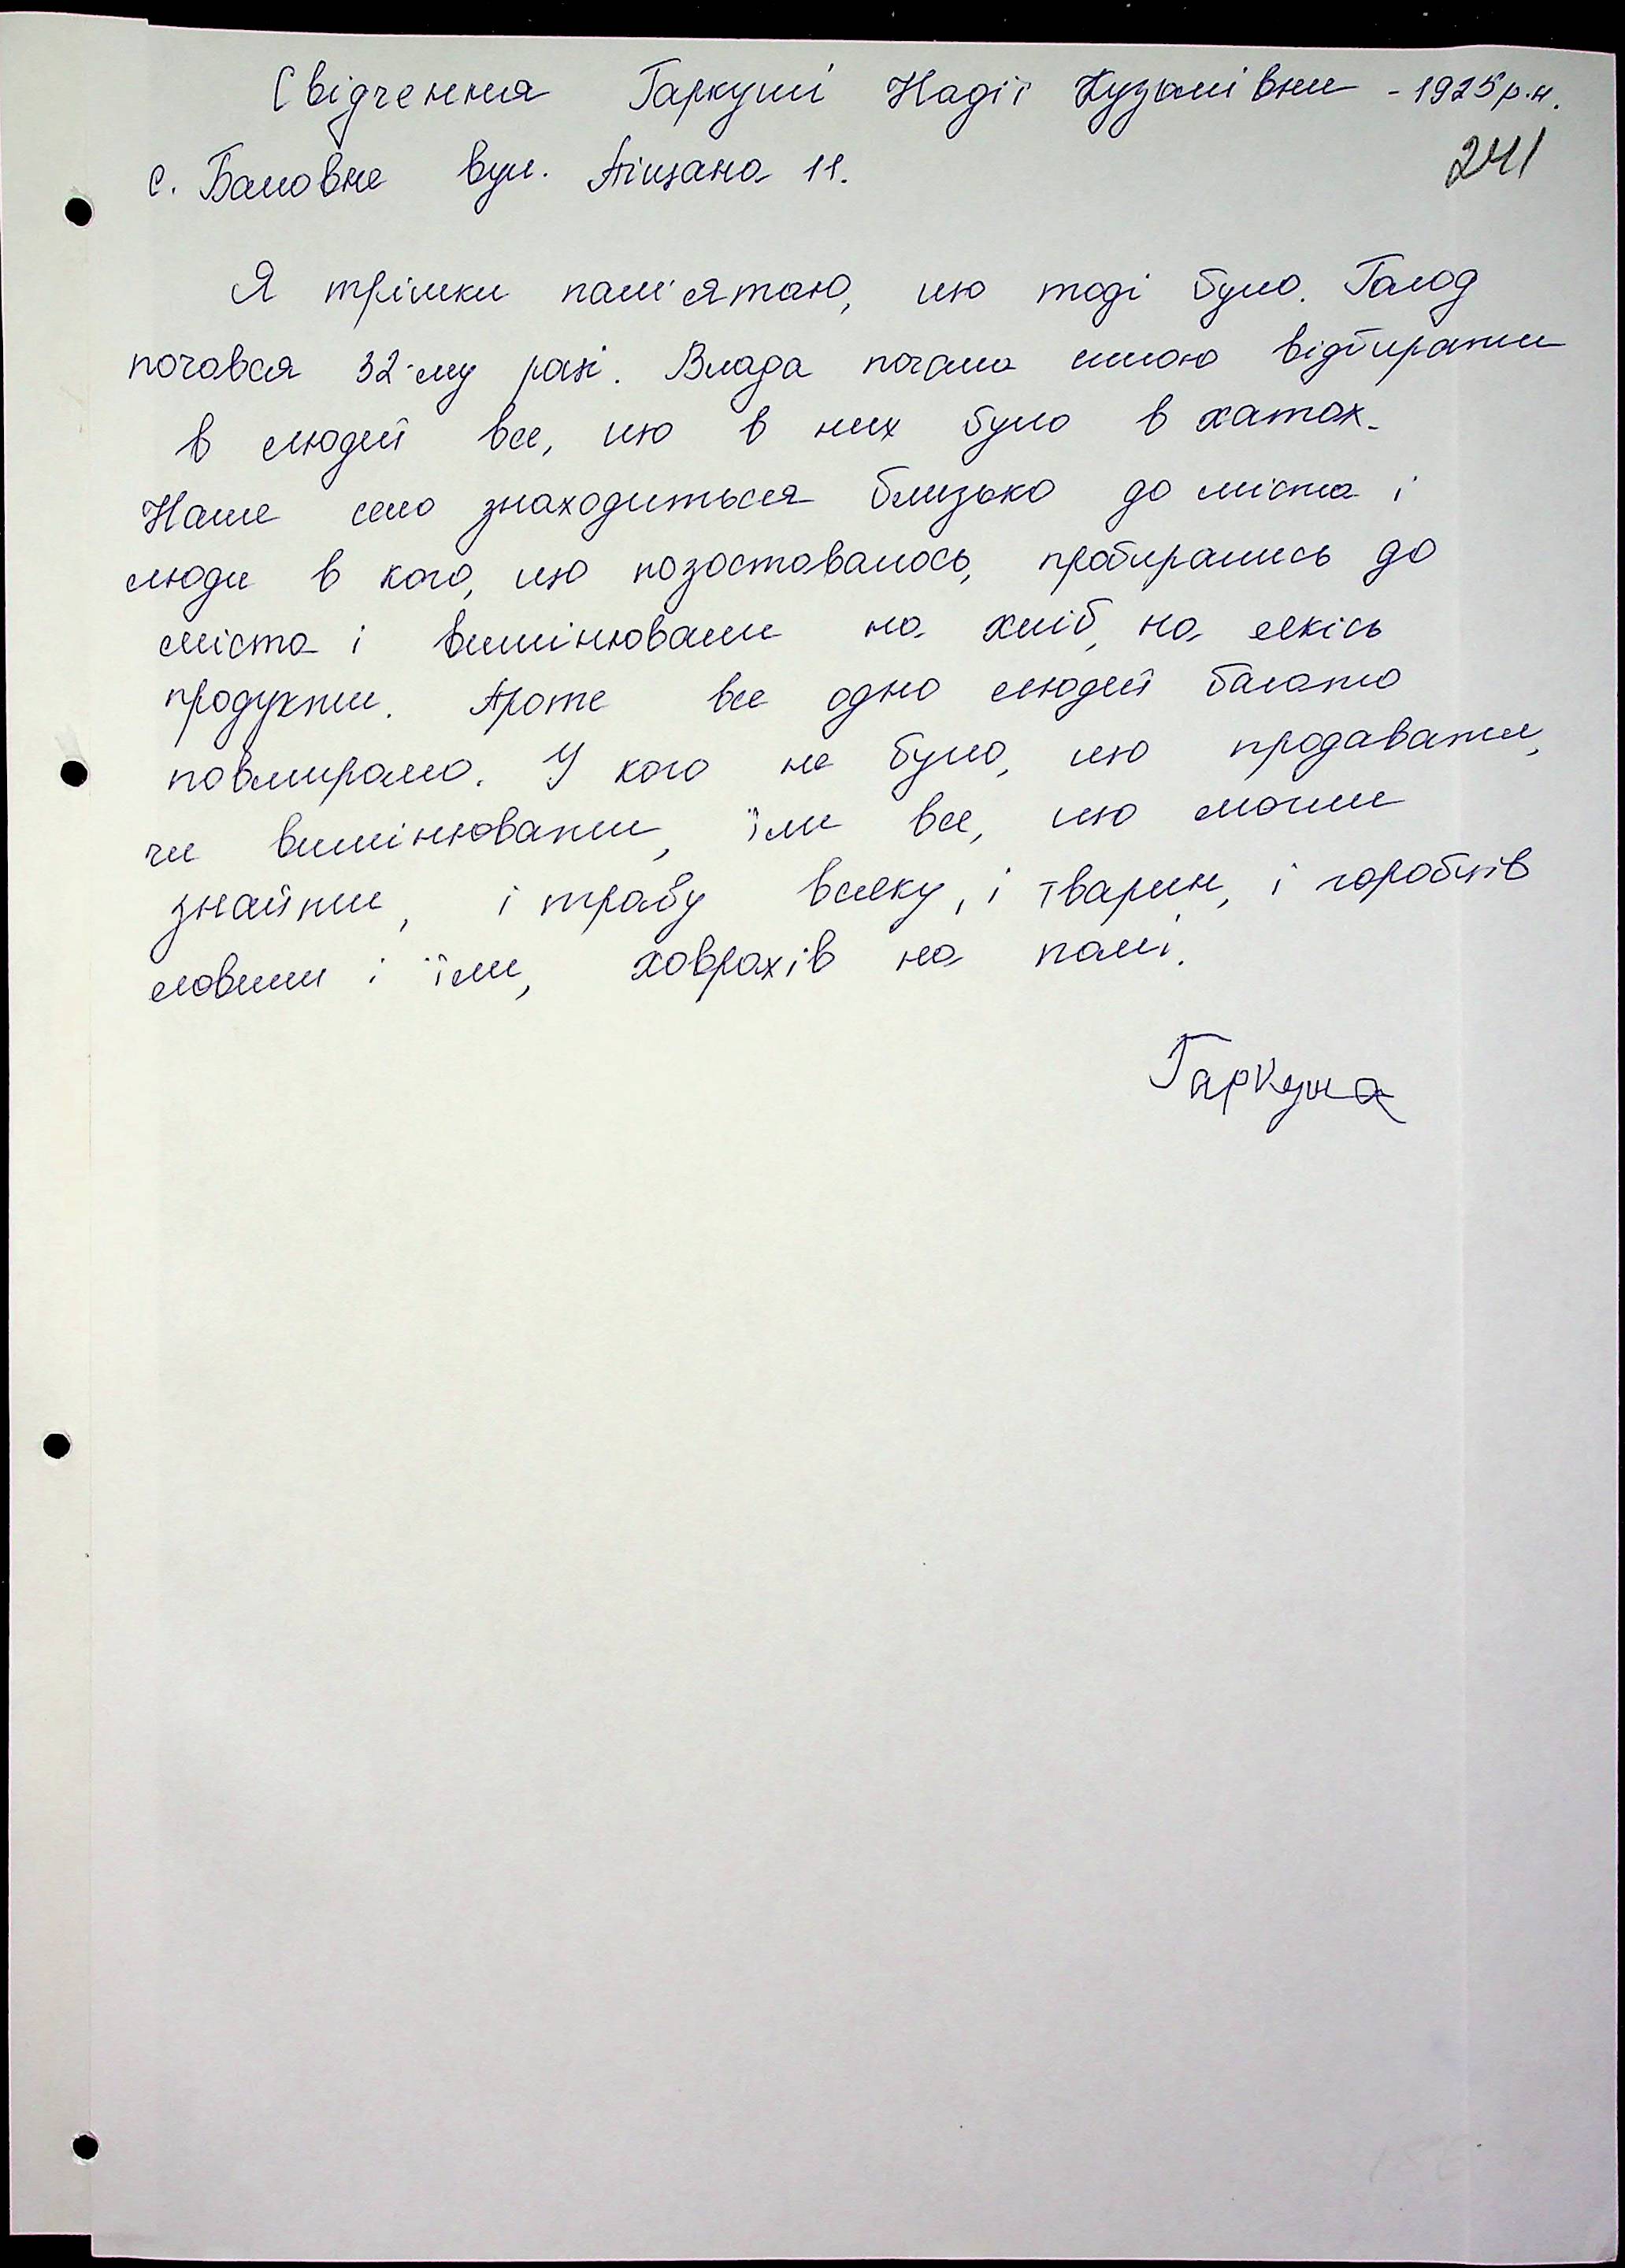 Свідчення Гаркуші Надії Кузьмівни - 1925 р.н.
241
с. Баловне вул. Піщана 11.
Я трішки пам'ятаю, що тоді було. Голод
почався 32-му році. Влада почала силою відбирати
в людей все, що в них було в хатах.
Наше село знаходиться близько до міста і
люди в кого, що позоставалось, пробирались до
міста і вимінювали на хліб, на якісь
продукти. Проте все одно людей багато
повмирало. У кого не було, що продавати,
чи вимінювати, їли все, що могли
знайти, і траву всяку, і тварин, і горобців
ловили і їли, ховрахів на полі.
Гаркуша